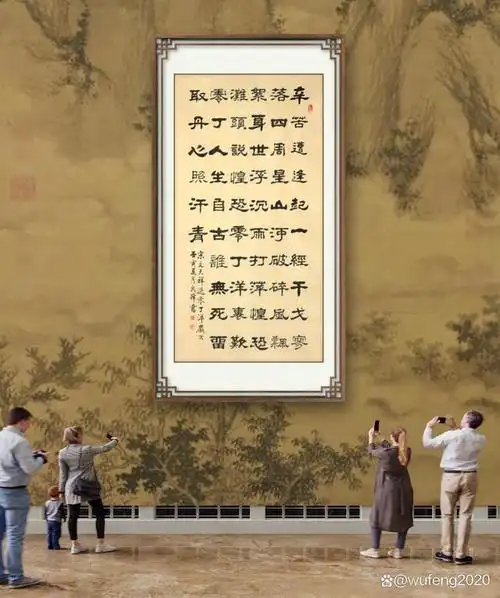 辛苦遭逢起一經干戈寥
落四周星山河破碎風飄
絮身世浮沉雨打萍惶恐
灘頭說惶恐零丁洋裏歎
零丁人生自古誰無死留
取丹心照汗青
宋文天祥過零丁洋歲次
壬寅夏月書
@wufeng2020